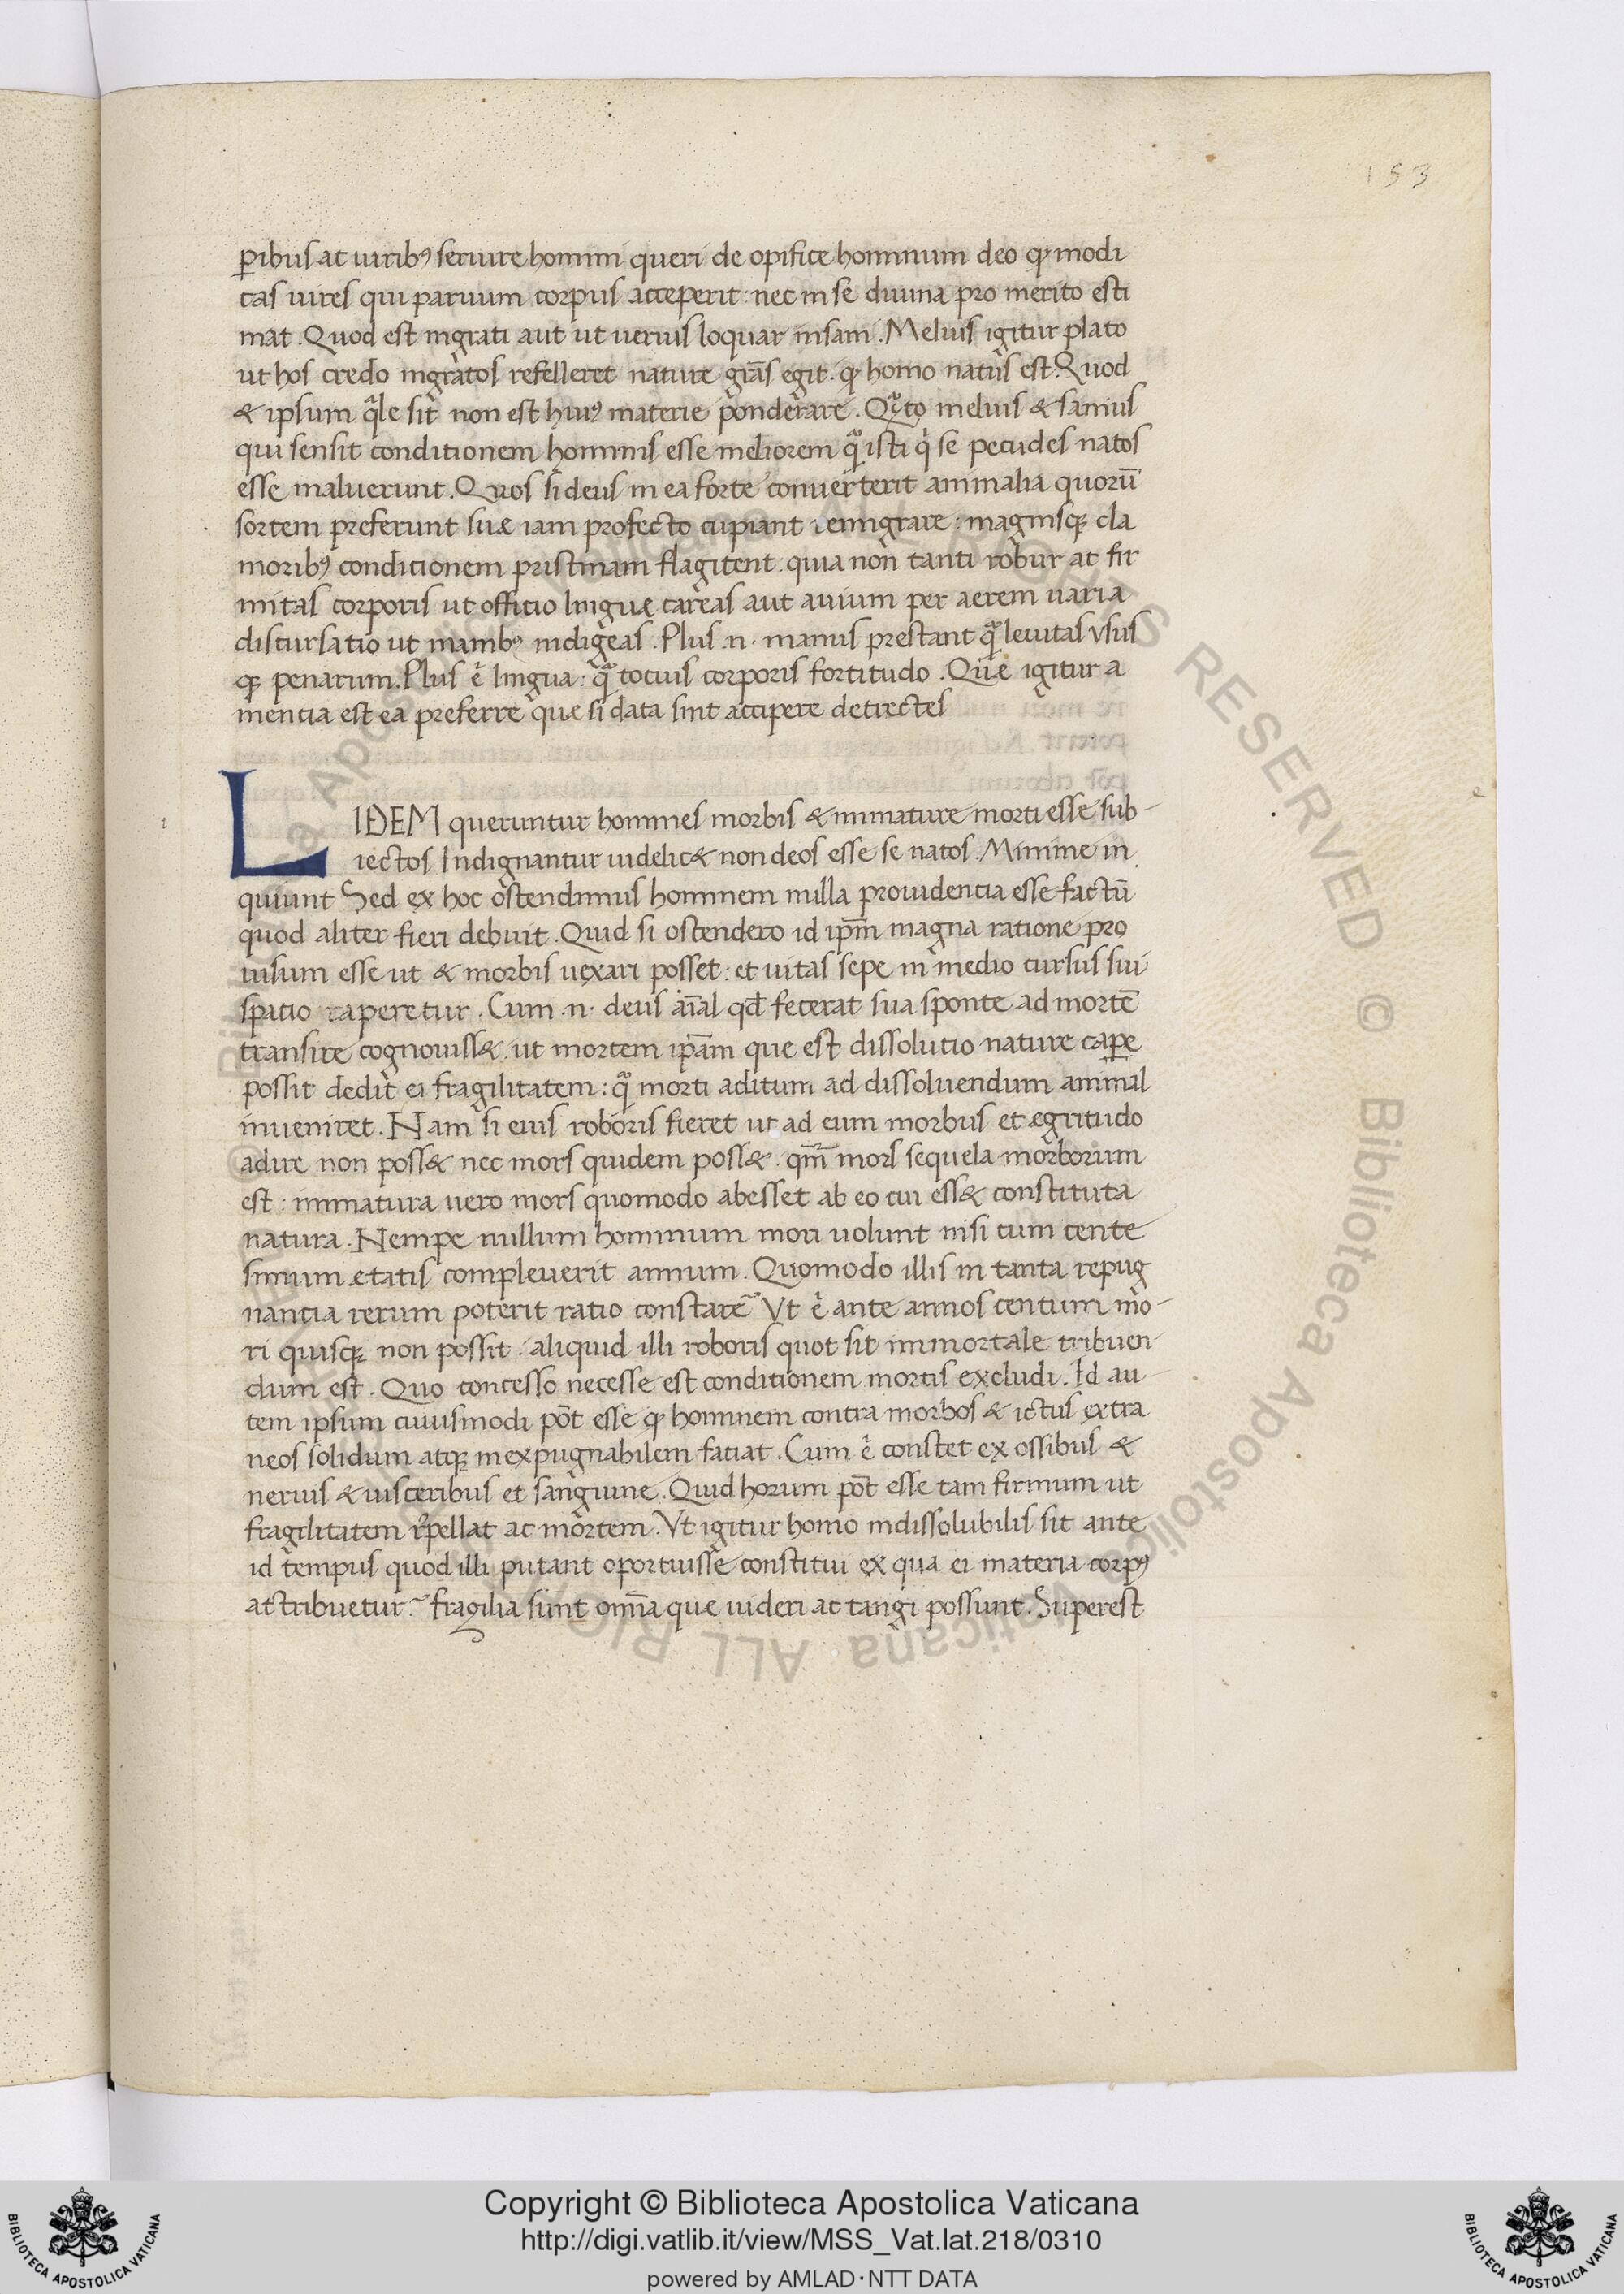 153
ꝑibus ac uiribꝰ seruire homini queri de opifice hominum deo ꝙ modi
cas uires qui paruum corpus acceperit: nec in se diuina pro merito esti
mat. Quod est ingrati aut ut uerius loquar insani. Melius igitur plato
ut hos credo ingratos refelleret nature gr̃as egit. ꝙ homo natus est. Quod
& ipsum q̃le sit non est huiꝰ materie ponderare. Qͣto melius & sanius
qui sensit conditionem hominis esse meliorem q̃ isti qͥ se pecudes natos
esse maluerunt. Quos si deus in ea forte conuerterit animalia quorũ
sortem preferunt suæ iam profecto cupiant remigrare: magnisqꝫ cla
moribꝰ condicionem pristinam flagitent. quia non tanti robur ac fir
mitas corporis ut officio linguæ careas aut auium per aerem uaria
discursatio ut manibꝰ indigeas. Plus .n. manus prestant q̃ leuitas usus
qꝫ penarum. Plus ẽ lingua: q̃ tocius corporis fortitudo. Que igitur a
mencia est ea preferre quæ si data sint accipere detrectes
LIDEM queruntur homines morbis & immature morti esse sub-
iectos Indignantur uidelic& non deos esse se natos. Minime in
quiunt Sed ex hoc ostendimus hominem nulla prouidencia esse factũ
quod aliter fieri debuit. Quid si ostendero id ip̃m magna ratione pro
uisum esse ut & morbis uexari posset: et uitas sepe in medio cursus sui
spatio raperetur. Cum .n. deus aĩal qd̃ fecerat sua sponte ad mortẽ
transire cognouiss&. ut mortem ip̃am que est dissolutio nature caꝑe
possit dedit ei fragilitatem: q̃ morti aditum ad dissoluendum animal
inueniret. Nam si eius roboris fieret ut ad eum morbus et ægritudo
adire non poss& nec mors quidem poss&. qm̃ mors sequela morborum
est: immatura uero mors quomodo abesset ab eo cui ess& constituta
natura. Nempe nullum hominum mori uolunt nisi cum cente
simum ætatis compleuerit annum. Quomodo illis in tanta repug
nancia rerum poterit ratio constare? Vt ẽ ante annos centum mo-
ri quisqꝫ non possit. aliquid illi roboris quot sit immortale tribuen-
dum est. Quo concesso necesse est conditionem mortis excludi. Id au-
tem ipsum cuiusmodi pōt esse ꝙ hominem contra morbos & ictus extra
neos solidum atqꝫ inexpugnabilem faciat. Cum ẽ constet ex ossibus &
neruis & uisceribus et sanguine. Quid horum pōt esse tam firmum ut
fragilitatem r̃pellat ac mortem. Vt igitur homo indissolubilis sit ante
id tempus quod illi putant oportuisse constitui ex qua ei materia corpꝰ
actribuetur? fragilia sunt om̃ia quæ uideri ac tangi possunt. Superest
Copyright © Biblioteca Apostolica Vaticana
http://digi.vatlib.it/view/MSS_Vat.lat.218/0310
powered by AMLAD·NTT DATA
BIBLIOTECA APOSTOLICA VATICANA
BIBLIOTECA APOSTOLICA VATICANA